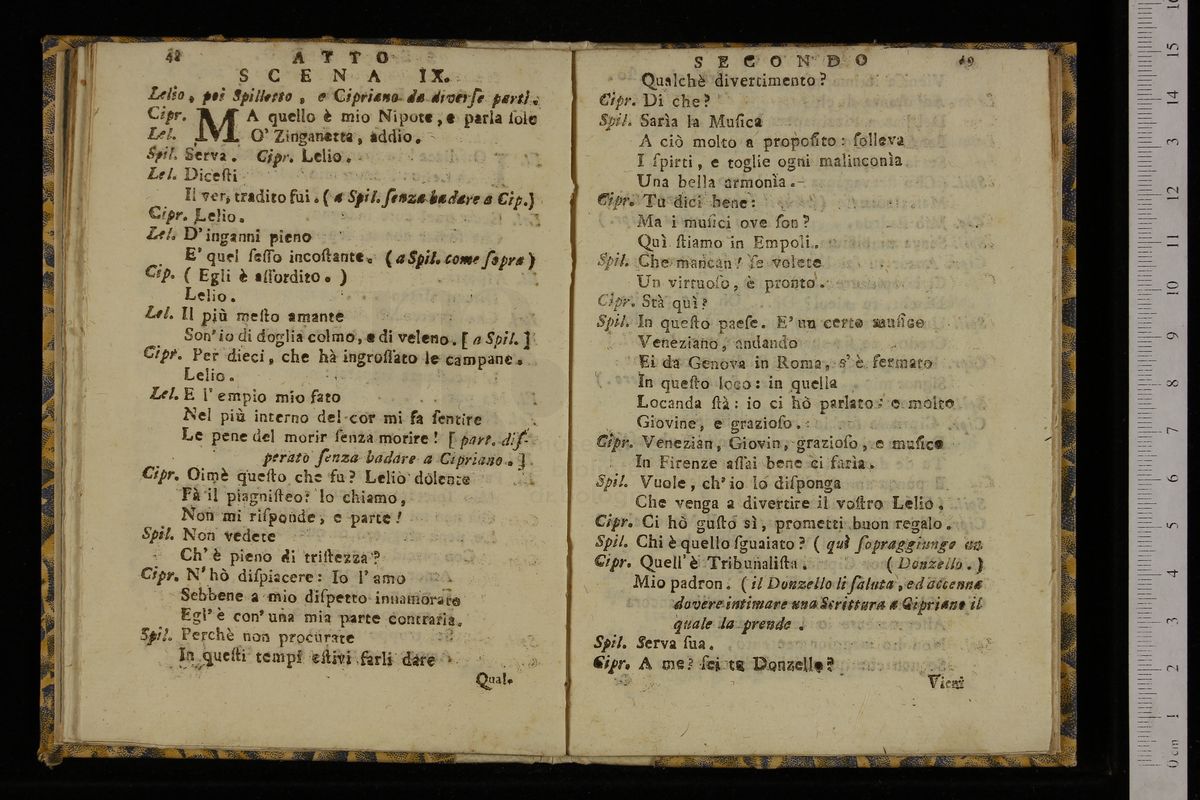 48 ATTO
SCENA IX.
Lelio, poi Spilletto, e Cipriano da diverse parti.
Cipr. MA quello è mio Nipote, e parla solo
Lel. O' Zinganetta, addio.
Spil. Serva. Cipr. Lelio.
Lel. Dicesti
Il ver, tradito fui. (a Spil. senza badare a Cip.)
Cipr. Lelio.
Lel. D'inganni pieno
E' quel sesso incostante. (a Spil. come sopra)
Cip. (Egli è assordito.)
Lelio.
Lel. Il più mesto amante
Son'io di doglia colmo, e di veleno. [a Spil.]
Cipr. Per dieci, che hà ingrossato le campane.
Lelio.
Lel. E l'empio mio fato
Nel più interno del cor mi fa sentire
Le pene del morir senza morire! [part. dis-
perato senza badare a Cipriano.]
Cipr. Oimè questo che fu? Lelio dolente
Fà il piagnisteo? lo chiamo,
Non mi risponde, e parte!
Spil. Non vedete
Ch'è pieno di tristezza?
Cipr. N'hò dispiacere: Io l'amo
Sebbene a mio dispetto innamorato
Egl'è con'una mia parte contraria.
Spil. Perchè non procurate
In questi tempi estivi farli dare
Qual-
SECONDO 49
Qualchè divertimento?
Cipr. Di che?
Spil. Sarìa la Musica
A ciò molto a proposito: solleva
I spirti, e toglie ogni malinconìa
Una bella armonìa.
Cipr. Tu dici bene:
Ma i musici ove son?
Quì stiamo in Empoli.
Spil. Che mancan! se volete
Un virtuoso, è pronto.
Cipr. Stà quì?
Spil. In questo paese. E' un certo musico
Veneziano, andando
Ei da Genova in Roma, s'è fermato
In questo loco: in quella
Locanda stà: io ci hò parlato: e molto
Giovine, e grazioso.
Cipr. Venezian, Giovin, grazioso, e musico
In Firenze assai bene ci faria.
Spil. Vuole, ch'io lo disponga
Che venga a divertire il vostro Lelio.
Cipr. Ci hò gusto sì, prometti buon regalo.
Spil. Chi è quello sguaiato? (quì sopraggiunge un
Cipr. Quell'è Tribunalista. (Donzello.)
Mio padron. (il Donzello li saluta, ed accenna
dovere intimare una Scrittura a Cipriano il
quale la prende.
Spil. Serva sua.
Cipr. A me? sei tu Donzello?
Vieni